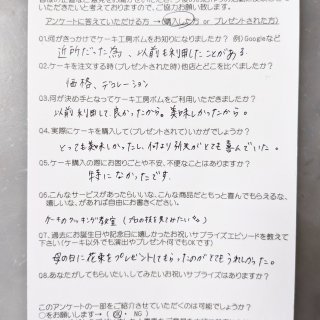 いただきたいと考えておりますので、ご協力お願い致します。
アンケートに答えていただける方 →（購入した方 or プレゼントされた方）
01.何がきっかけでケーキ工房ボムをお知りになりましたか？ 例）Googleなど
近所だった為、以前も利用したことがある。
02.ケーキを注文する時（プレゼントされた時）他店とどこを比べましたか？
価格、デコレーション
03.何が決め手となってケーキ工房ボムをご利用いただきましたか？
以前利用して良かったから。美味しかったから。
04.実際にケーキを購入して（プレゼントされて）いかがでしょうか？
とっても美味しかったし、何より別夫がとても喜んでいた。
05.ケーキ購入の際にお困りごとや不安、不便なことはありますか？
特になかったです。
06.こんなサービスがあったらいいな、こんな商品だともっと喜んでもらえるな、
嬉しいな、があれば自由にお書きください。
ケーキのクッキング教室（プロの技を見てみたい）
07.過去にお誕生日や記念日に嬉しかったお祝いサプライズエピソードを教えて
下さい（ケーキ以外でも演出やプレゼント何でもOKです）
母の日に花束をプレゼントしてもらったのがとてもうれしかった。
08.あなたがしてもらいたい、してみたいお祝いサプライズはありますか？
このアンケートの一部をご紹介させていただくのは可能でしょうか？
○をお願いします→（ OK ・ NG ）